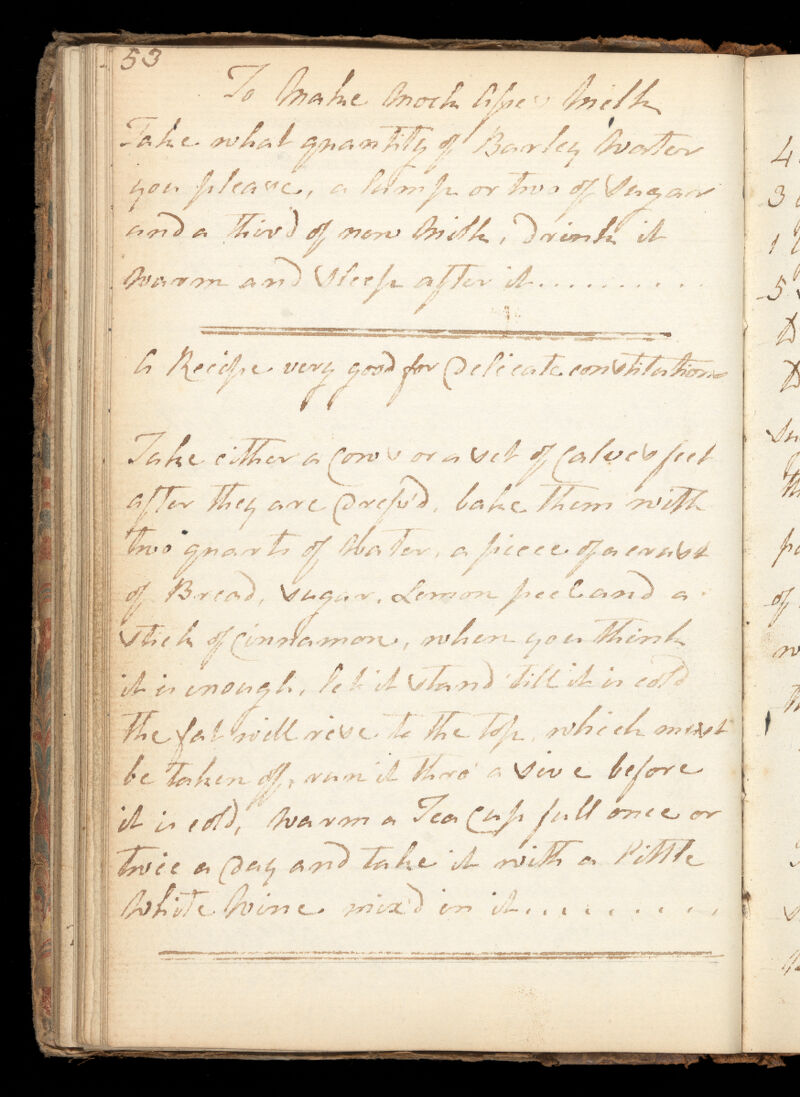 53
To Make Mock Asses Milk
Take what quantity of Barley Water
you please, a lump or two of Sugar
and a third of new Milk, Drink it
Warm and Sleep after it..........
A Recipe very good for Delicate constitutions
Take either a Cows or a set of Calves feet
after they are Dress'd, bake them with
two quarts of Water, a piece of a crust
of Bread, sugar, Lemon peel and a
stick of Cinnamon, when you think
it is enough, let it stand till it is cold
the fat will rise to the top, which must
be taken of, run it thro' a sive before
it is cold, Warm a Tea Cup full once or
twice a Day and take it with a little
White Wine mix'd in it.........
4
3
1
5
D
D
su
th
pa
of
w
th